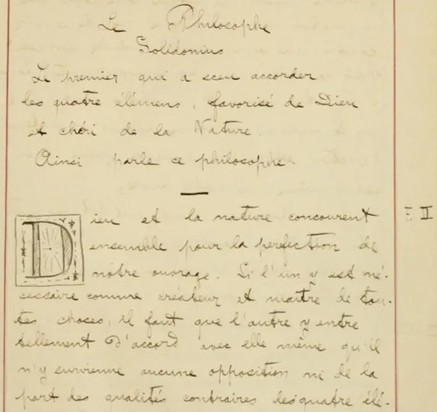 Le Philosophe
Solidonius
Le premier qui a sceu accorder
les quatre élémens, favorisé de Dieu
et chéri de la Nature.
Ainsi parle ce philosophe
Dieu et la nature concourent
ensemble pour la perfection de
notre ouvrage. Si l'un y est né-
cessaire comme créateur et maître de tou-
tes choses, il faut que l'autre y entre
tellement d'accord avec elle même qu'il
n'y survienne aucune opposition ni de la
part des qualités contraires des quatre élé-
II